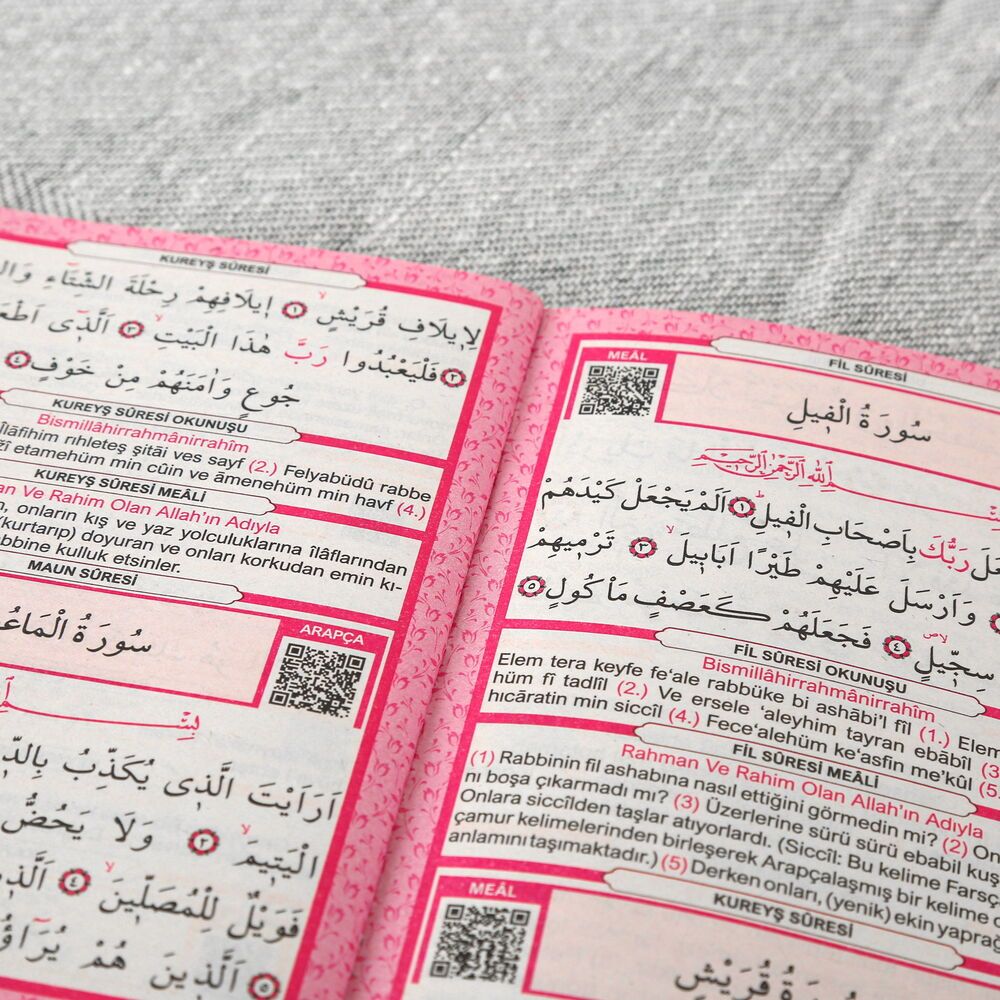 KUREYŞ SÛRESİ
لِا۪يلَافِ قُرَيْشٍۙ ﴿١﴾ ا۪يلَافِهِمْ رِحْلَةَ الشِّتَٓاءِ
﴿٢﴾ فَلْيَعْبُدُوا رَبَّ هٰذَا الْبَيْتِۙ ﴿٣﴾ اَلَّذ۪ٓي
جُوعٍ وَاٰمَنَهُمْ مِنْ خَوْفٍ ﴿٤﴾
KUREYŞ SÛRESİ OKUNUŞU
Bismillâhirrahmânirrahîm
îlâfihim rıhleteş şitâi ves sayf (2.) Felyabüdû rabbe
etamehüm min cûin ve âmenehüm min havf (4.)
KUREYŞ SÛRESİ MEÂLİ
Ve Rahim Olan Allah'ın Adıyla
onların kış ve yaz yolculuklarına îlâflarından
(kurtarıp) doyuran ve onları korkudan emin kı-
kulluk etsinler.
MAUN SÛRESİ
ARAPÇA
سُورَةُ
اَرَاَيْتَ الَّذ۪ي يُكَذِّبُ
الْيَت۪يمَۙ ﴿٢﴾ وَلَا يَحُضُّ
فَوَيْلٌ لِلْمُصَلّ۪ينَۙ ﴿٤﴾
﴿٥﴾ اَلَّذ۪ينَ هُمْ
FİL SÛRESİ
MEÂL
سُورَةُ الْف۪يلِ
رَبُّكَ بِاَصْحَابِ الْف۪يلِۜ ﴿١﴾ اَلَمْ يَجْعَلْ كَيْدَهُمْ
وَاَرْسَلَ عَلَيْهِمْ طَيْرًا اَبَاب۪يلَۙ ﴿٣﴾ تَرْم۪يهِمْ
سِجّ۪يلٍۙ ﴿٤﴾ فَجَعَلَهُمْ كَعَصْفٍ مَأْكُولٍ ﴿٥﴾
FİL SÛRESİ OKUNUŞU
Bismillâhirrahmânirrahîm
Elem tera keyfe fe'ale rabbüke bi ashâbi'l fîl (1.) Elem
hüm fî tadlîl (2.) Ve ersele 'aleyhim tayran ebâbîl (3
hıcâratin min siccîl (4.) Fece'alehüm ke'asfin me'kûl (5.
FİL SÛRESİ MEÂLİ
Rahman Ve Rahim Olan Allah'ın Adıyla
(1) Rabbinin fil ashabına nasıl ettiğini görmedin mi? (2)
nı boşa çıkarmadı mı? (3) Üzerlerine sürü sürü ebabil
Onlara siccîlden taşlar atıyorlardı. (Siccîl: Bu kelime
çamur kelimelerinden birleşerek Arapçalaşmış bir kelime
anlamını taşımaktadır.) (5) Derken onları, (yenik) ekin
KUREYŞ SÛRESİ
MEÂL
سُورَةُ قُرَيْشٍ